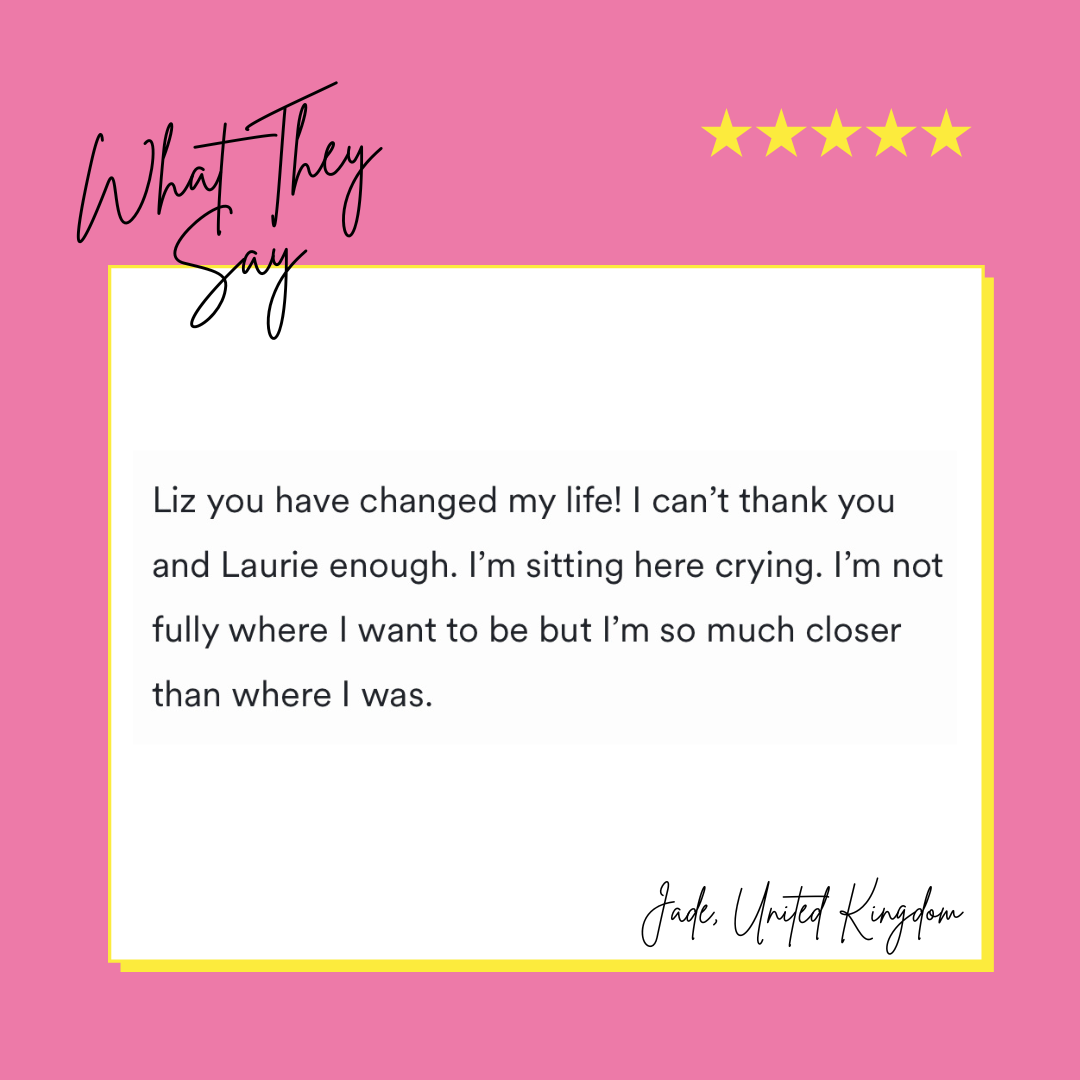 What They
Say
Liz you have changed my life! I can’t thank you
and Laurie enough. I’m sitting here crying. I’m not
fully where I want to be but I’m so much closer
than where I was.
Jade, United Kingdom